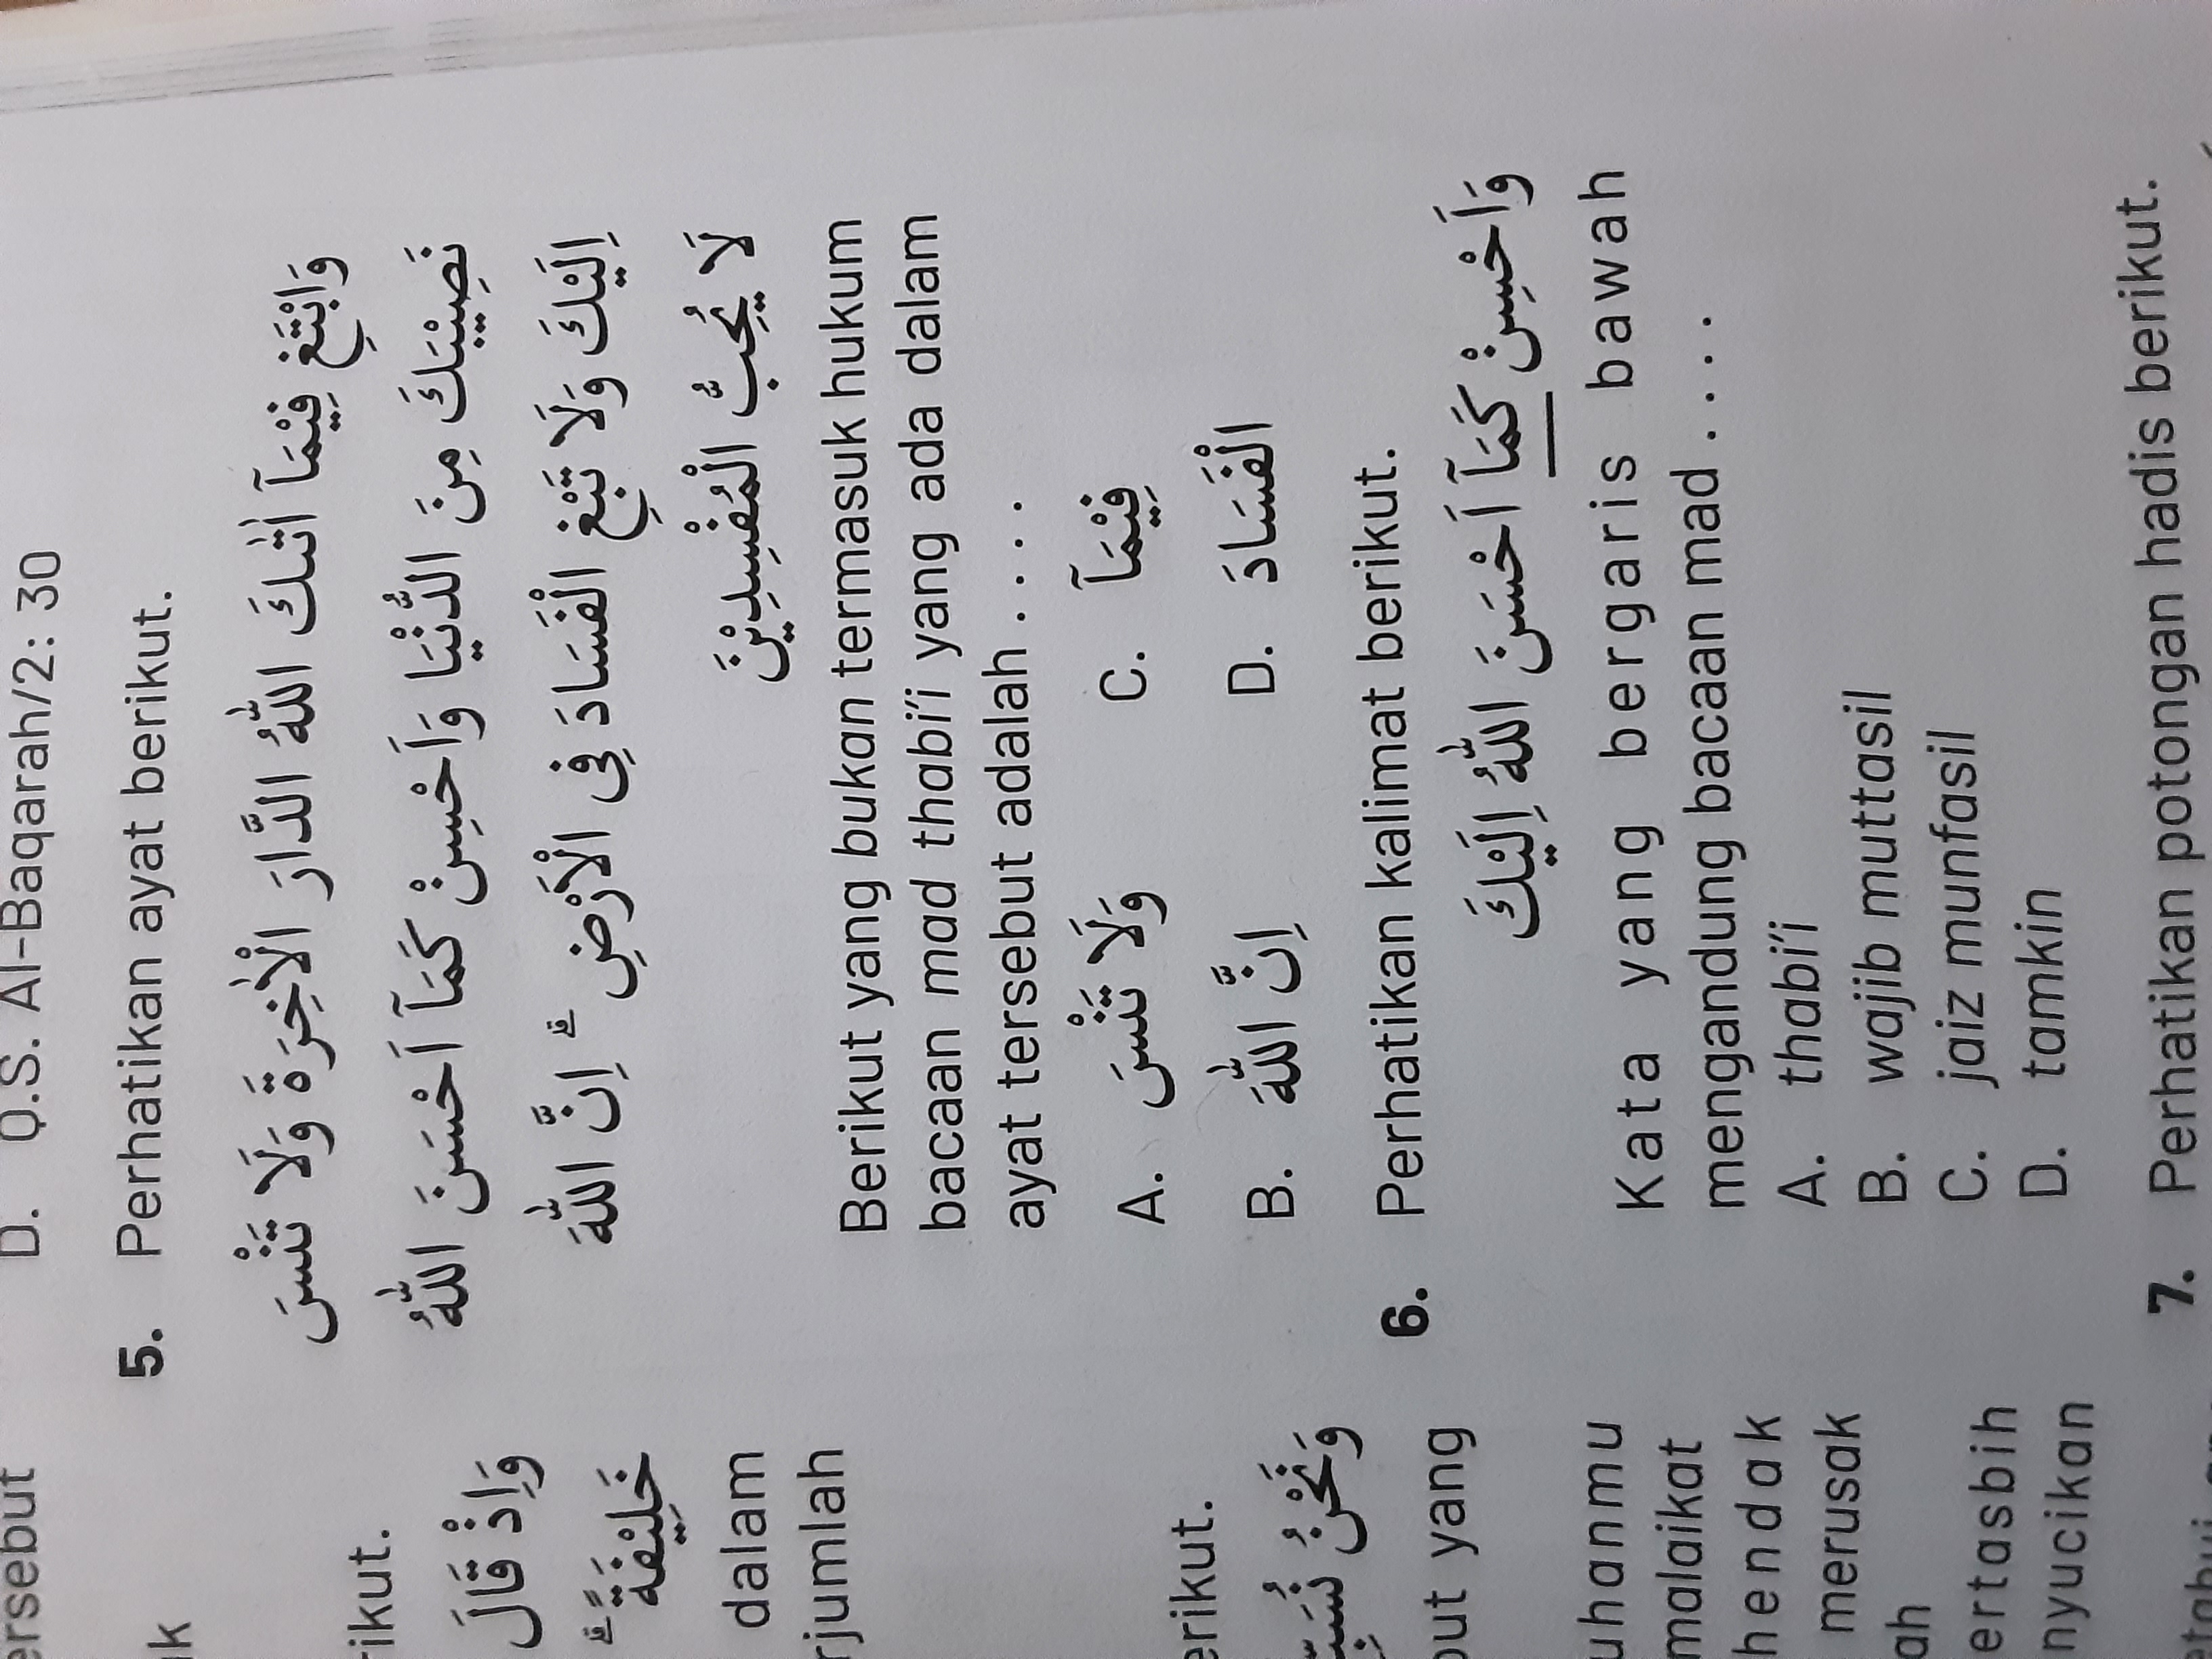 ersebut
k
rikut.
وَاِذْ قَالَ
خَلِيْفَةً ۗ
dalam
rjumlah
erikut.
وَنَحْنُ
out yang
uhanmu
malaikat
hendak
merusak
ah
ertasbih
nyucikan
D. Q.S. Al-Baqarah/2: 30
5. Perhatikan ayat berikut.
وَابْتَغِ فِيْمَآ اٰتٰىكَ اللّٰهُ الدَّارَ الْاٰخِرَةَ وَلَا تَنْسَ
نَصِيْبَكَ مِنَ الدُّنْيَا وَاَحْسِنْ كَمَآ اَحْسَنَ اللّٰهُ
اِلَيْكَ وَلَا تَبْغِ الْفَسَادَ فِى الْاَرْضِ ۗ اِنَّ اللّٰهَ
لَا يُحِبُّ الْمُفْسِدِيْنَ
Berikut yang bukan termasuk hukum
bacaan mad thabi'i yang ada dalam
ayat tersebut adalah . . . .
A. وَلَا تَنْسَ C. فِيْمَآ
B. اِنَّ اللّٰهَ D. الْفَسَادَ
6. Perhatikan kalimat berikut.
وَاَحْسِنْ كَمَآ اَحْسَنَ اللّٰهُ اِلَيْكَ
Kata yang bergaris bawah
mengandung bacaan mad . . . .
A. thabi'i
B. wajib muttasil
C. jaiz munfasil
D. tamkin
7. Perhatikan potongan hadis berikut.